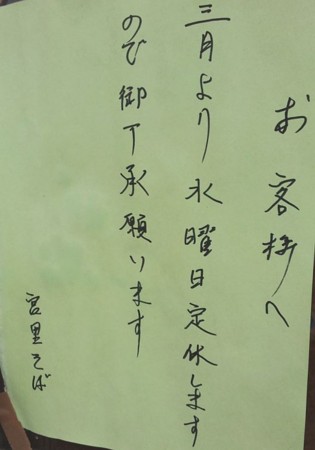 お客様へ
三月より水曜日定休します
のび御了承願います
宮里そば